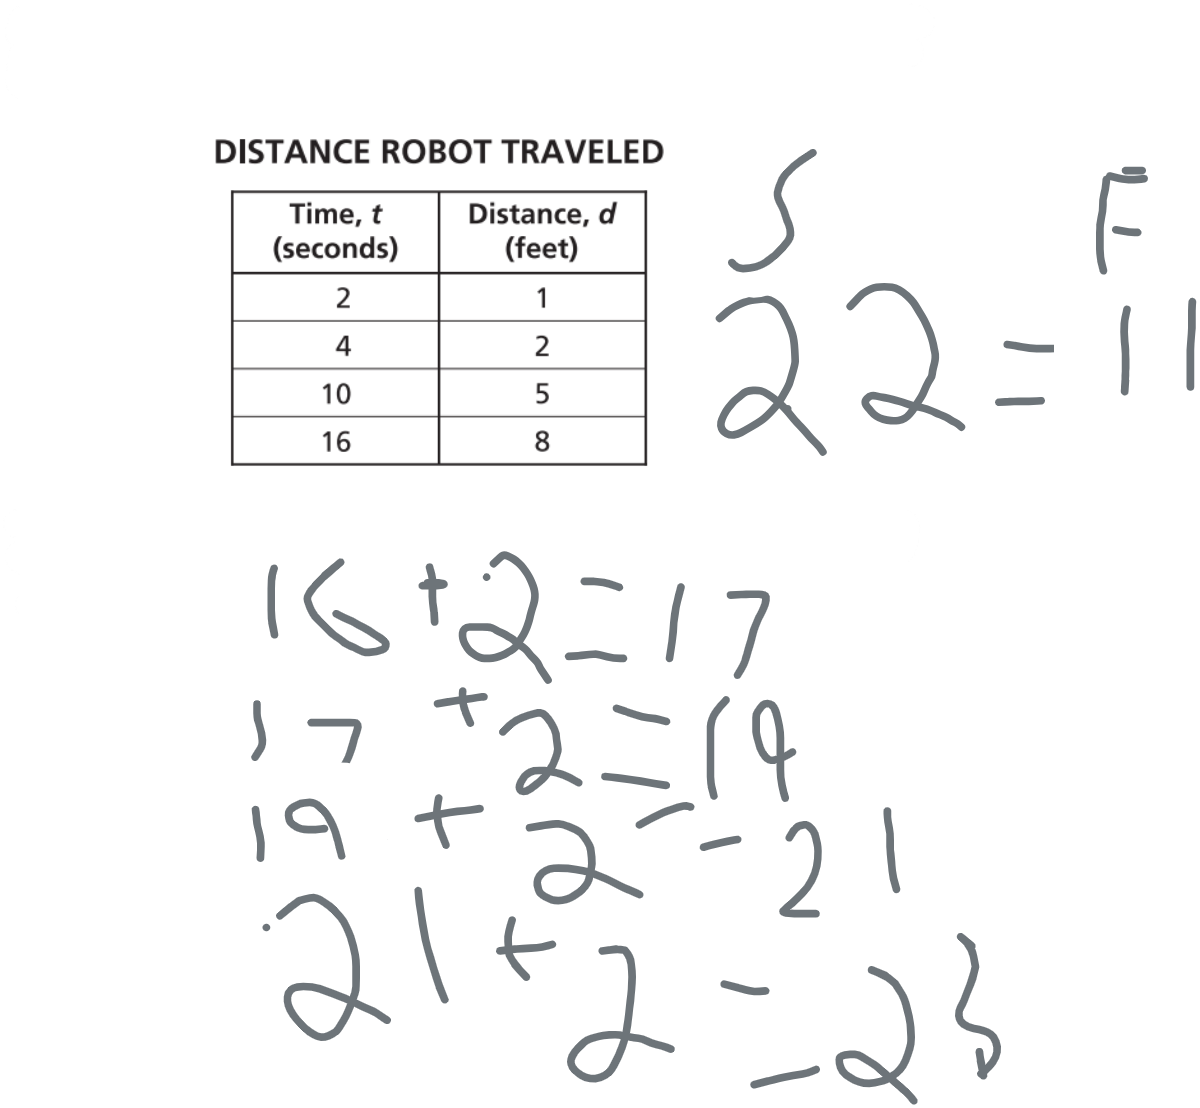 DISTANCE ROBOT TRAVELED
Time, t (seconds) Distance, d (feet)
2 1
4 2
10 5
16 8
S F
22 = 11
16 + 2 = 17
17 + 2 = 19
19 + 2 = 21
21 + 2 = 23